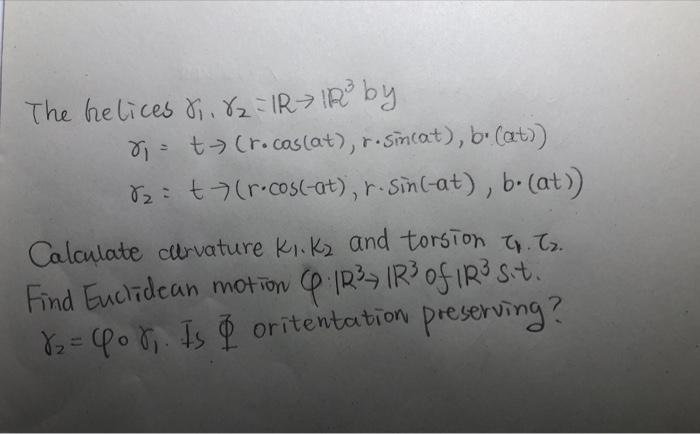 The helices γ₁, γ₂ = ℝ → ℝ³ by
γ₁ = t → (r·cos(at), r·sin(at), b·(at))
γ₂ = t → (r·cos(-at), r·sin(-at), b·(at))
Calculate curvature κ₁, κ₂ and torsion τ₁, τ₂.
Find Euclidean motion φ: ℝ³ → ℝ³ of ℝ³ s.t.
γ₂ = φ∘γ₁. Is Φ oritentation preserving?